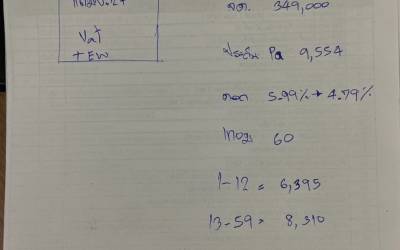 Vat
+ EW
349,000
ประกัน Pa 9,554
ดอก 5.99% → 4.79%
60
1-12 = 6,395
13-59 = 8,310